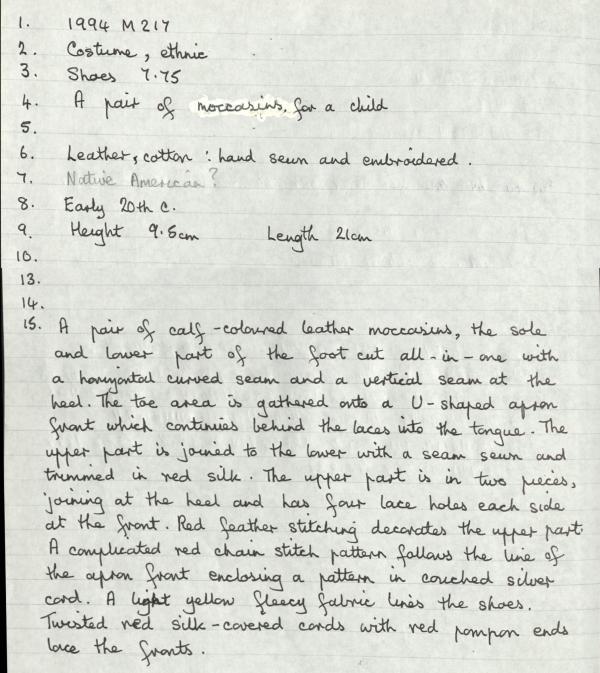 1. 1994 M 217
2. Costume, ethnic
3. Shoes 7.75
4. A pair of moccasins, for a child
5.
6. Leather, cotton : hand sewn and embroidered.
7. Native American?
8. Early 20th c.
9. Height 9.5cm Length 21cm
10.
13.
14.
15. A pair of calf-coloured leather moccasins, the sole
and lower part of the foot cut all-in-one with
a horizontal curved seam and a vertical seam at the
heel. The toe area is gathered onto a U-shaped apron
front which continues behind the laces into the tongue. The
upper part is joined to the lower with a seam sewn and
trimmed in red silk. The upper part is in two pieces,
joining at the heel and has four lace holes each side
at the front. Red feather stitching decorates the upper part.
A complicated red chain stitch pattern follows the line of
the apron front enclosing a pattern in couched silver
cord. A light yellow fleecy fabric lines the shoes.
Twisted red silk-covered cords with red pompon ends
lace the fronts.